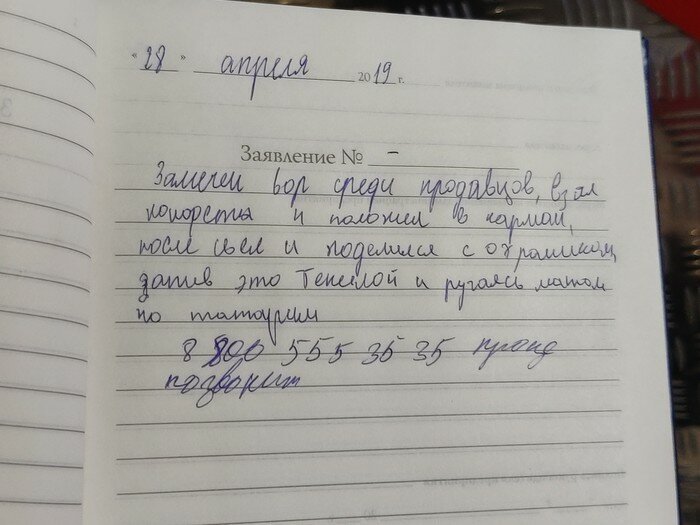 "28" апреля 2019 г.
Заявление № -
Замечен вор среди продавцов, взял
конфеты и положил в карман,
после съел и поделился с охраником,
запив это Текилой и ругаясь матом
по татарски
8 800 555 35 35 проще
позвонит